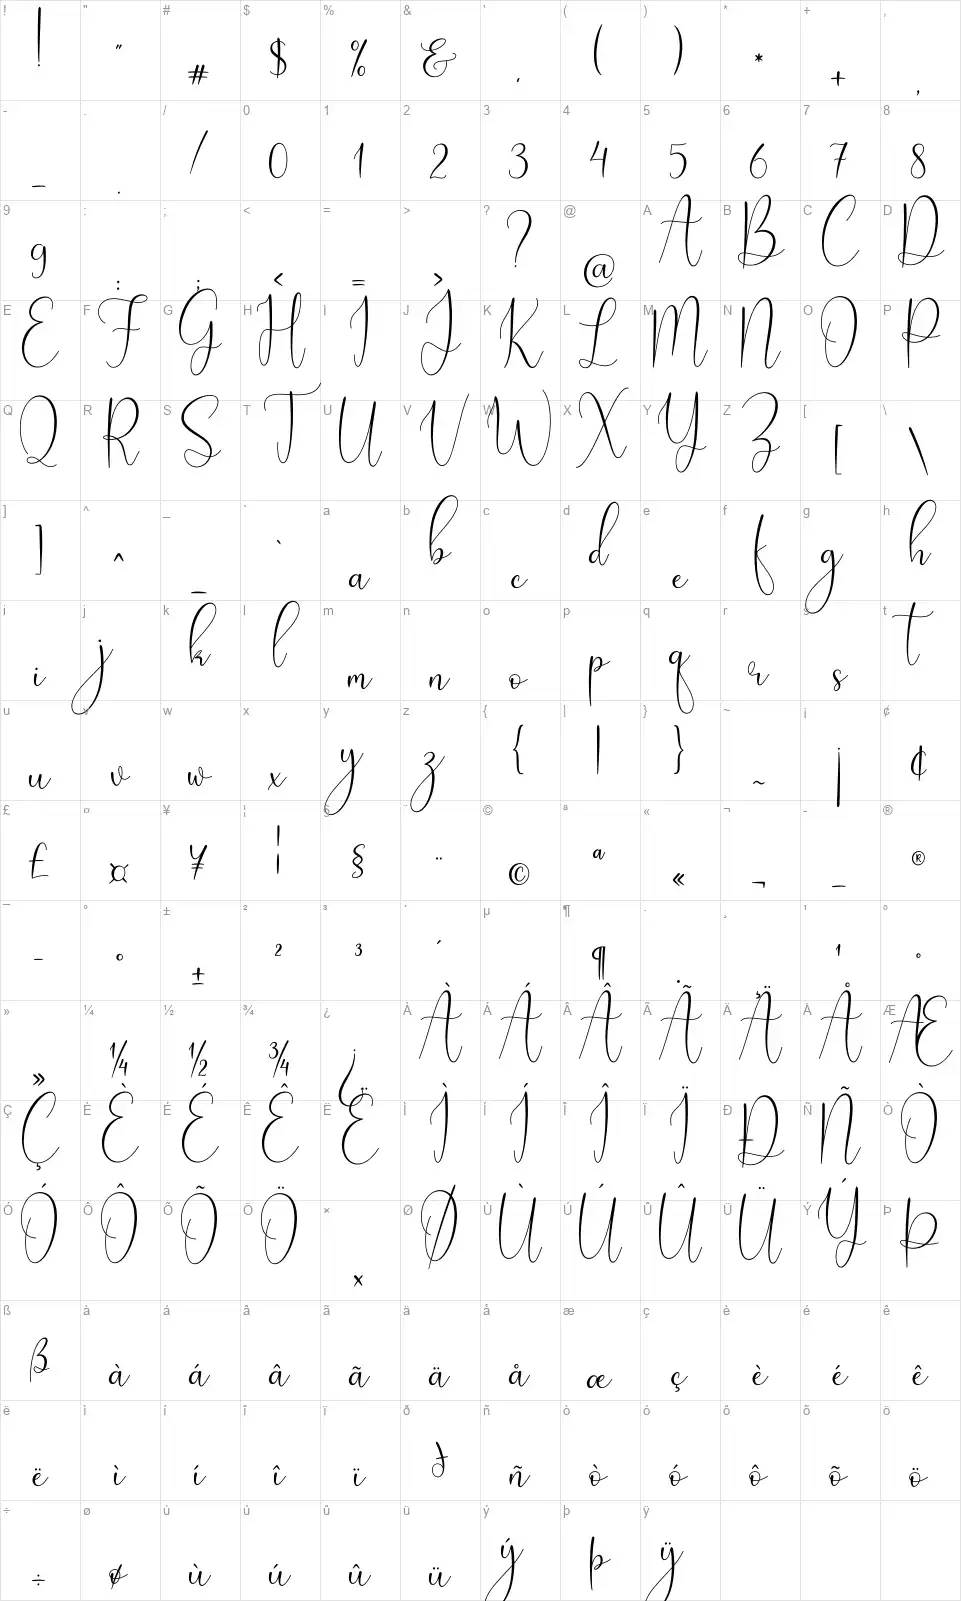 ! " # $ % & ' ( ) * + ,
! " # $ % & ' ( ) * + ,
- . / 0 1 2 3 4 5 6 7 8
- . / 0 1 2 3 4 5 6 7 8
9 : ; < = > ? @ A B C D
9 : ; < = > ? @ A B C D
E F G H I J K L M N O P
E F G H I J K L M N O P
Q R S T U V W X Y Z [ \
Q R S T U V W X Y Z [ \
] ^ _ ` a b c d e f g h
] ^ _ ` a b c d e f g h
i j k l m n o p q r s t
i j k l m n o p q r s t
u v w x y z { | } ~ ¡ ¢
u v w x y z { | } ~ ¡ ¢
£ ¤ ¥ ¦ § ¨ © ª « ¬ - ®
£ ¤ ¥ ¦ § ¨ © ª « ¬ - ®
¯ ° ± ² ³ ´ µ ¶ · ¸ ¹ º
¯ ° ± ² ³ ´ ¶ · ¸ ¹ º
» ¼ ½ ¾ ¿ À Á Â Ã Ä Å Æ
» ¼ ½ ¾ ¿ À Á Â Ã Ä Å Æ
Ç È É Ê Ë Ì Í Î Ï Ð Ñ Ò
Ç È É Ê Ë Ì Í Î Ï Ð Ñ Ò
Ó Ô Õ Ö × Ø Ù Ú Û Ü Ý Þ
Ó Ô Õ Ö × Ø Ù Ú Û Ü Ý Þ
ß à á â ã ä å æ ç è é ê
ß à á â ã ä å æ ç è é ê
ë ì í î ï ð ñ ò ó ô õ ö
ë ì í î ï ð ñ ò ó ô õ ö
÷ ø ù ú û ü ý þ ÿ
÷ ø ù ú û ü ý þ ÿ